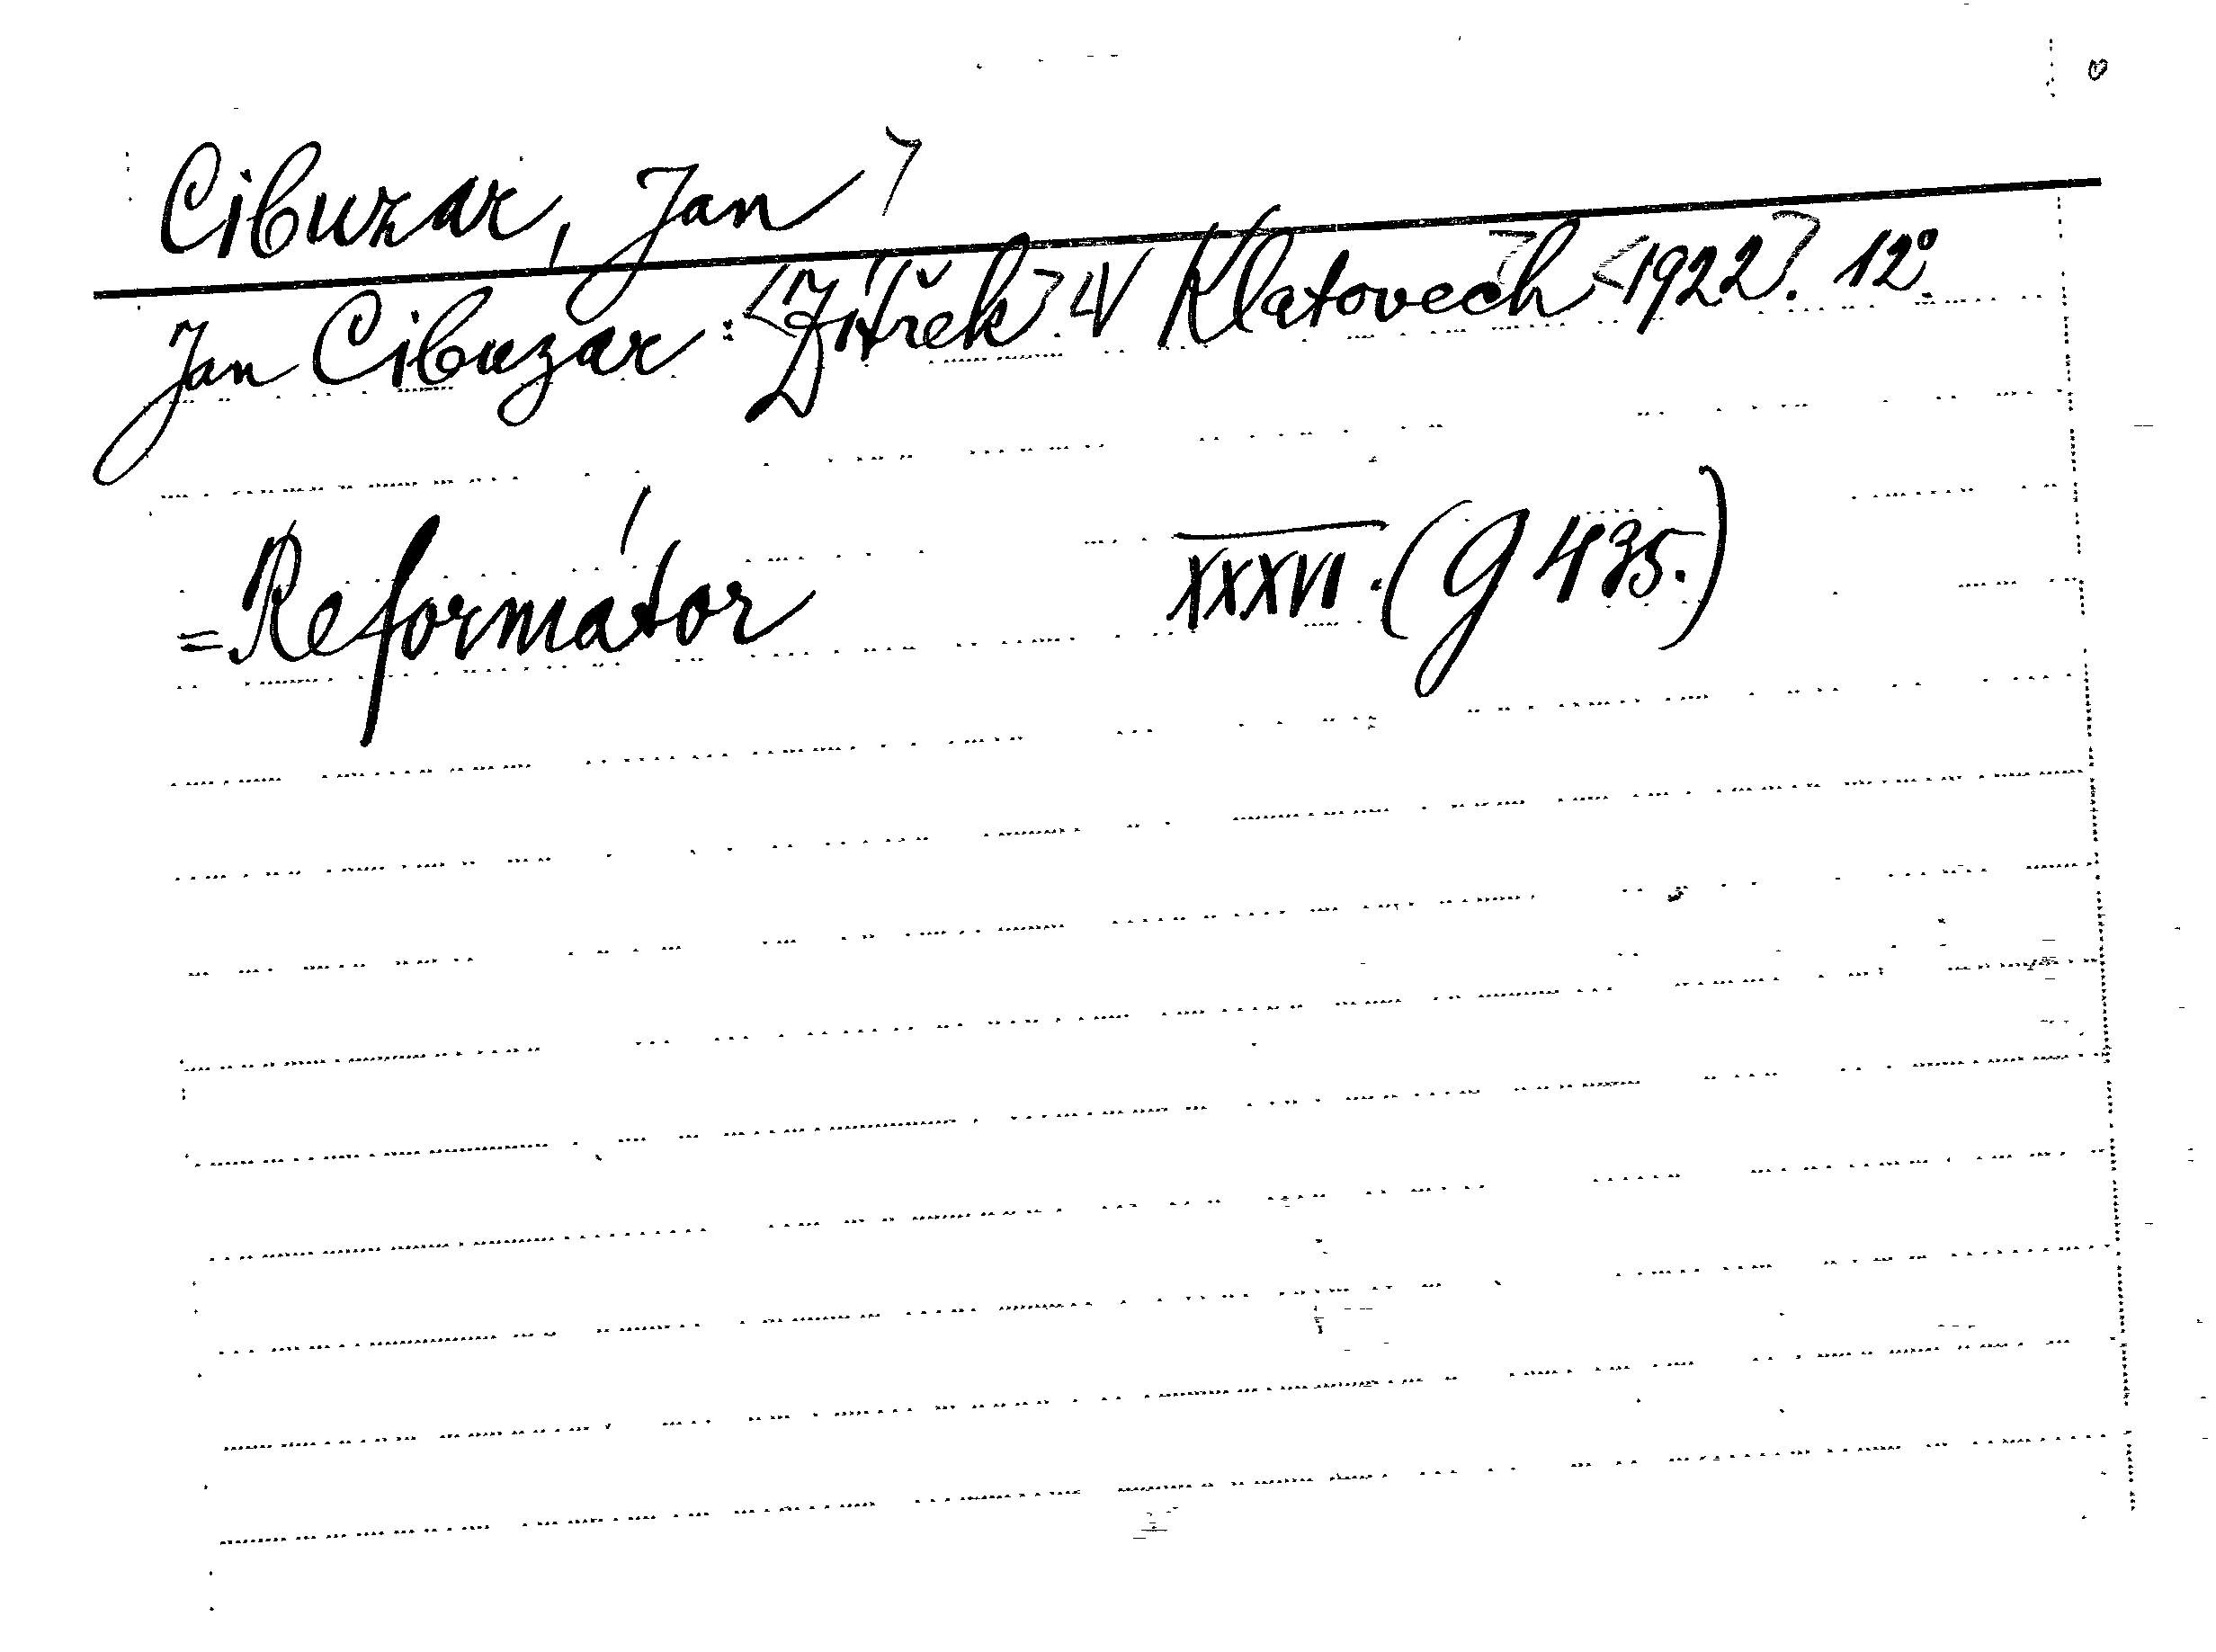 Cibuzar, Jan
Jan Cibuzar: V Klatovech 1922. 12°.
=Reformátor XXXVI. (G 435.)